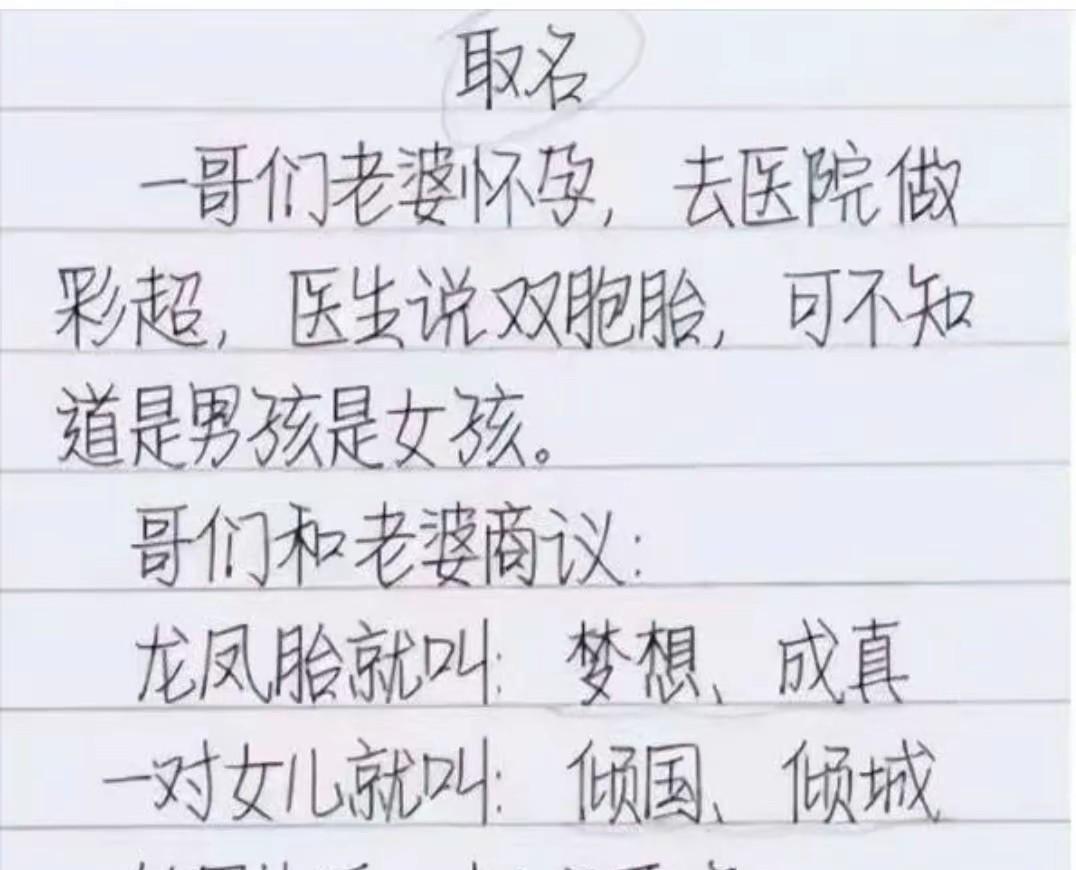 取名
一哥们老婆怀孕，去医院做
彩超，医生说双胞胎，可不知
道是男孩是女孩。
哥们和老婆商议：
龙凤胎就叫：梦想、成真
一对女儿就叫：倾国、倾城